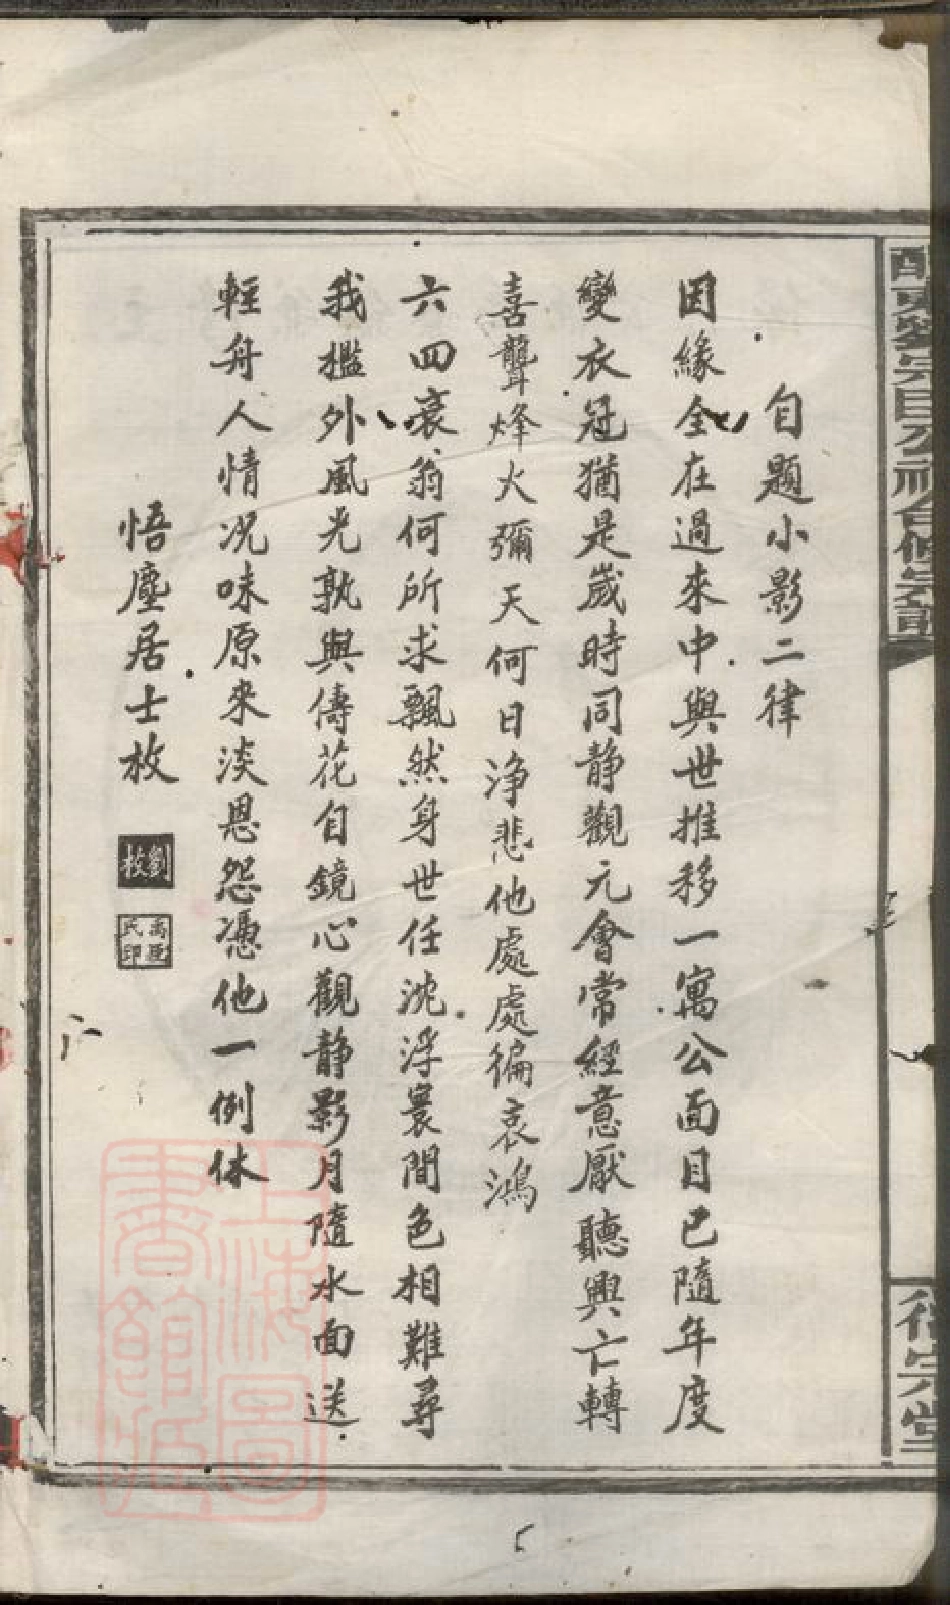 自題小影二律
因緣全在過來中與世推移一寓公面目已隨年度
變衣冠猶是歲時同静觀元會常經意厭聽興亡轉
喜聾烽火彌天何日淨悲他處處徧哀鴻
六四衰翁何所求飄然身世任沈浮寰間色相難尋
我檻外風光孰與儔花自鏡心觀静影月隨水面送
輕舟人情况味原來淡恩怨憑他一例休
悟塵居士枚
劉枚
上海圖書館藏